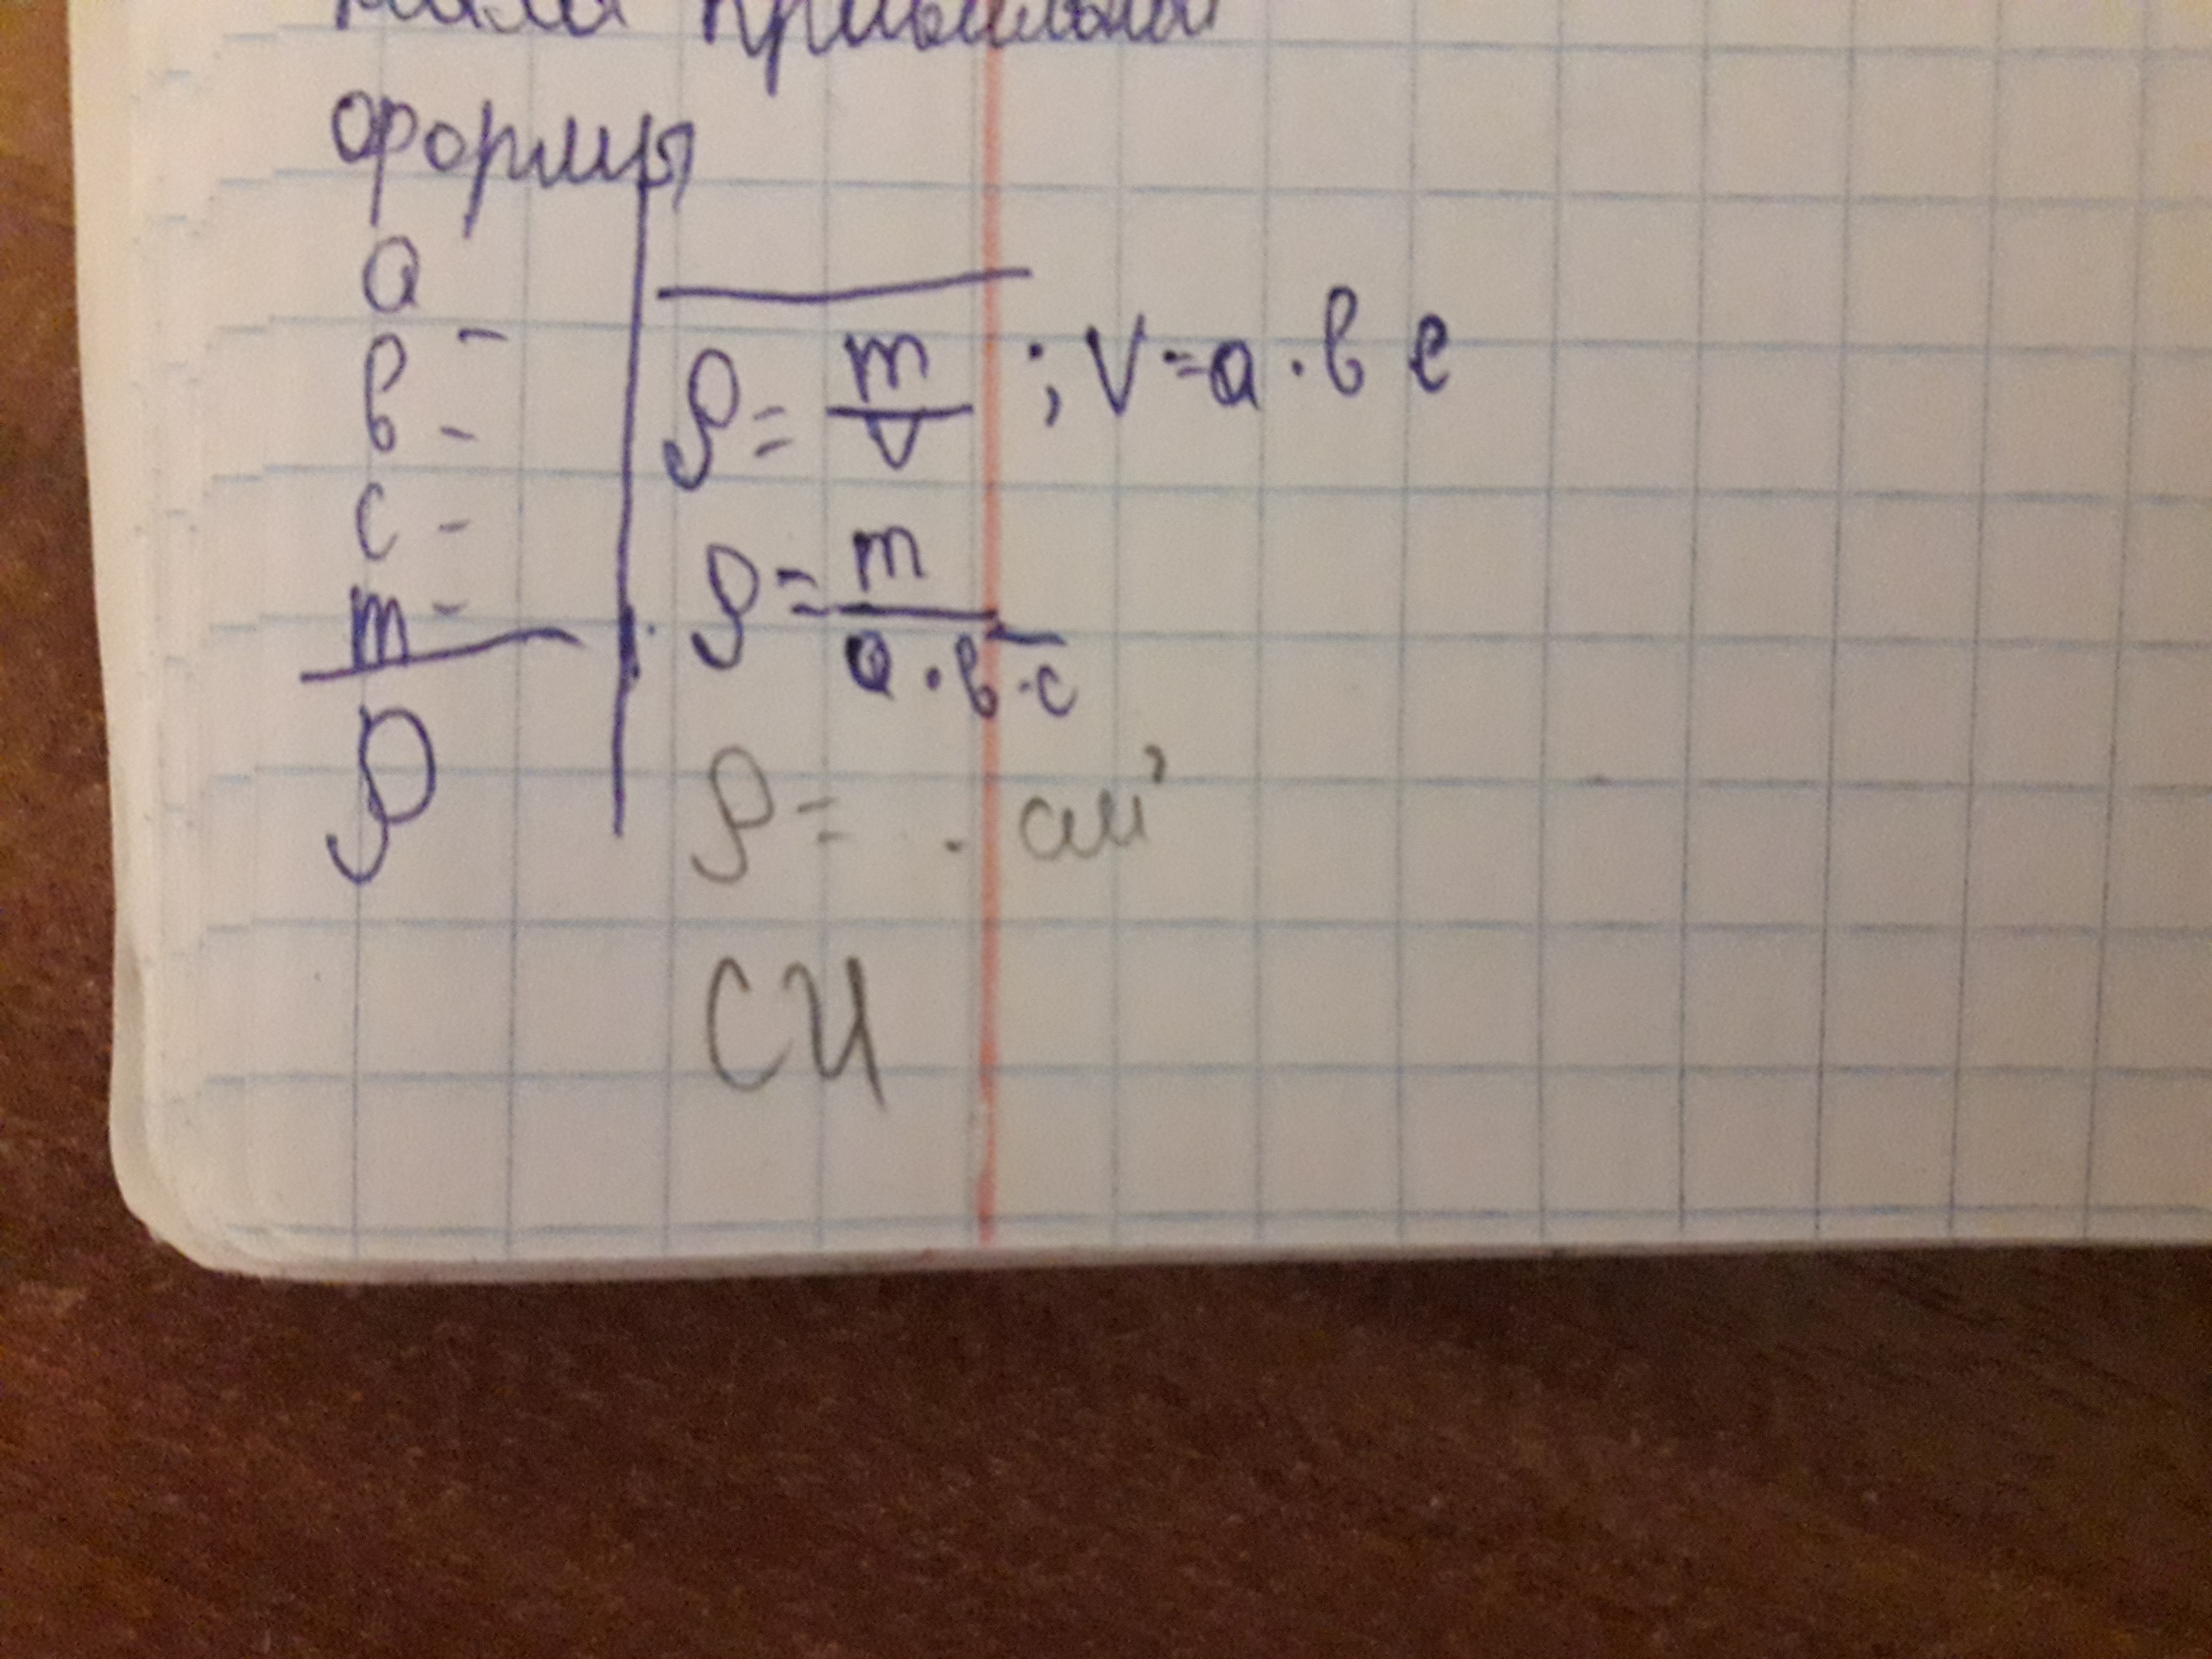 формы
a -
b -
c -
m -
ρ
ρ = m/V ; V = a · b c
ρ = m/(a · b · c)
ρ = · см³
СИ